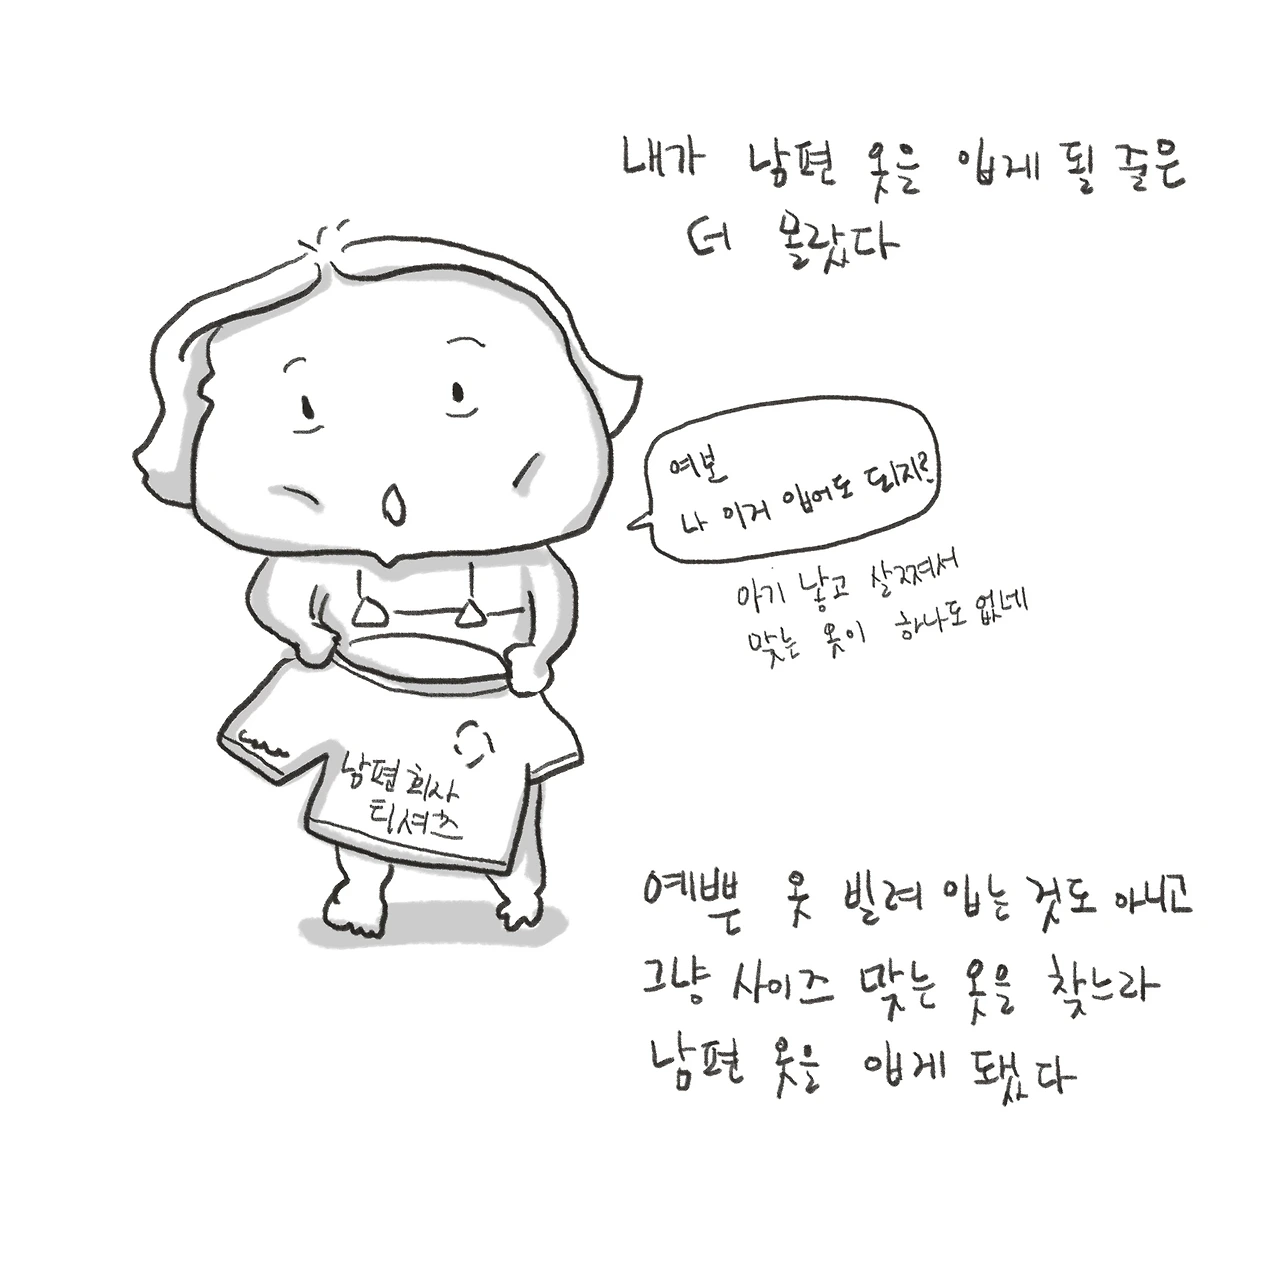 내가 남편 옷을 입게 될 줄은
더 몰랐다
여보
나 이거 입어도 되지?
아기 낳고 살쪄서
맞는 옷이 하나도 없네
남편 회사
티셔츠
예쁜 옷 빌려 입는 것도 아니고
그냥 사이즈 맞는 옷을 찾느라
남편 옷을 입게 됐다